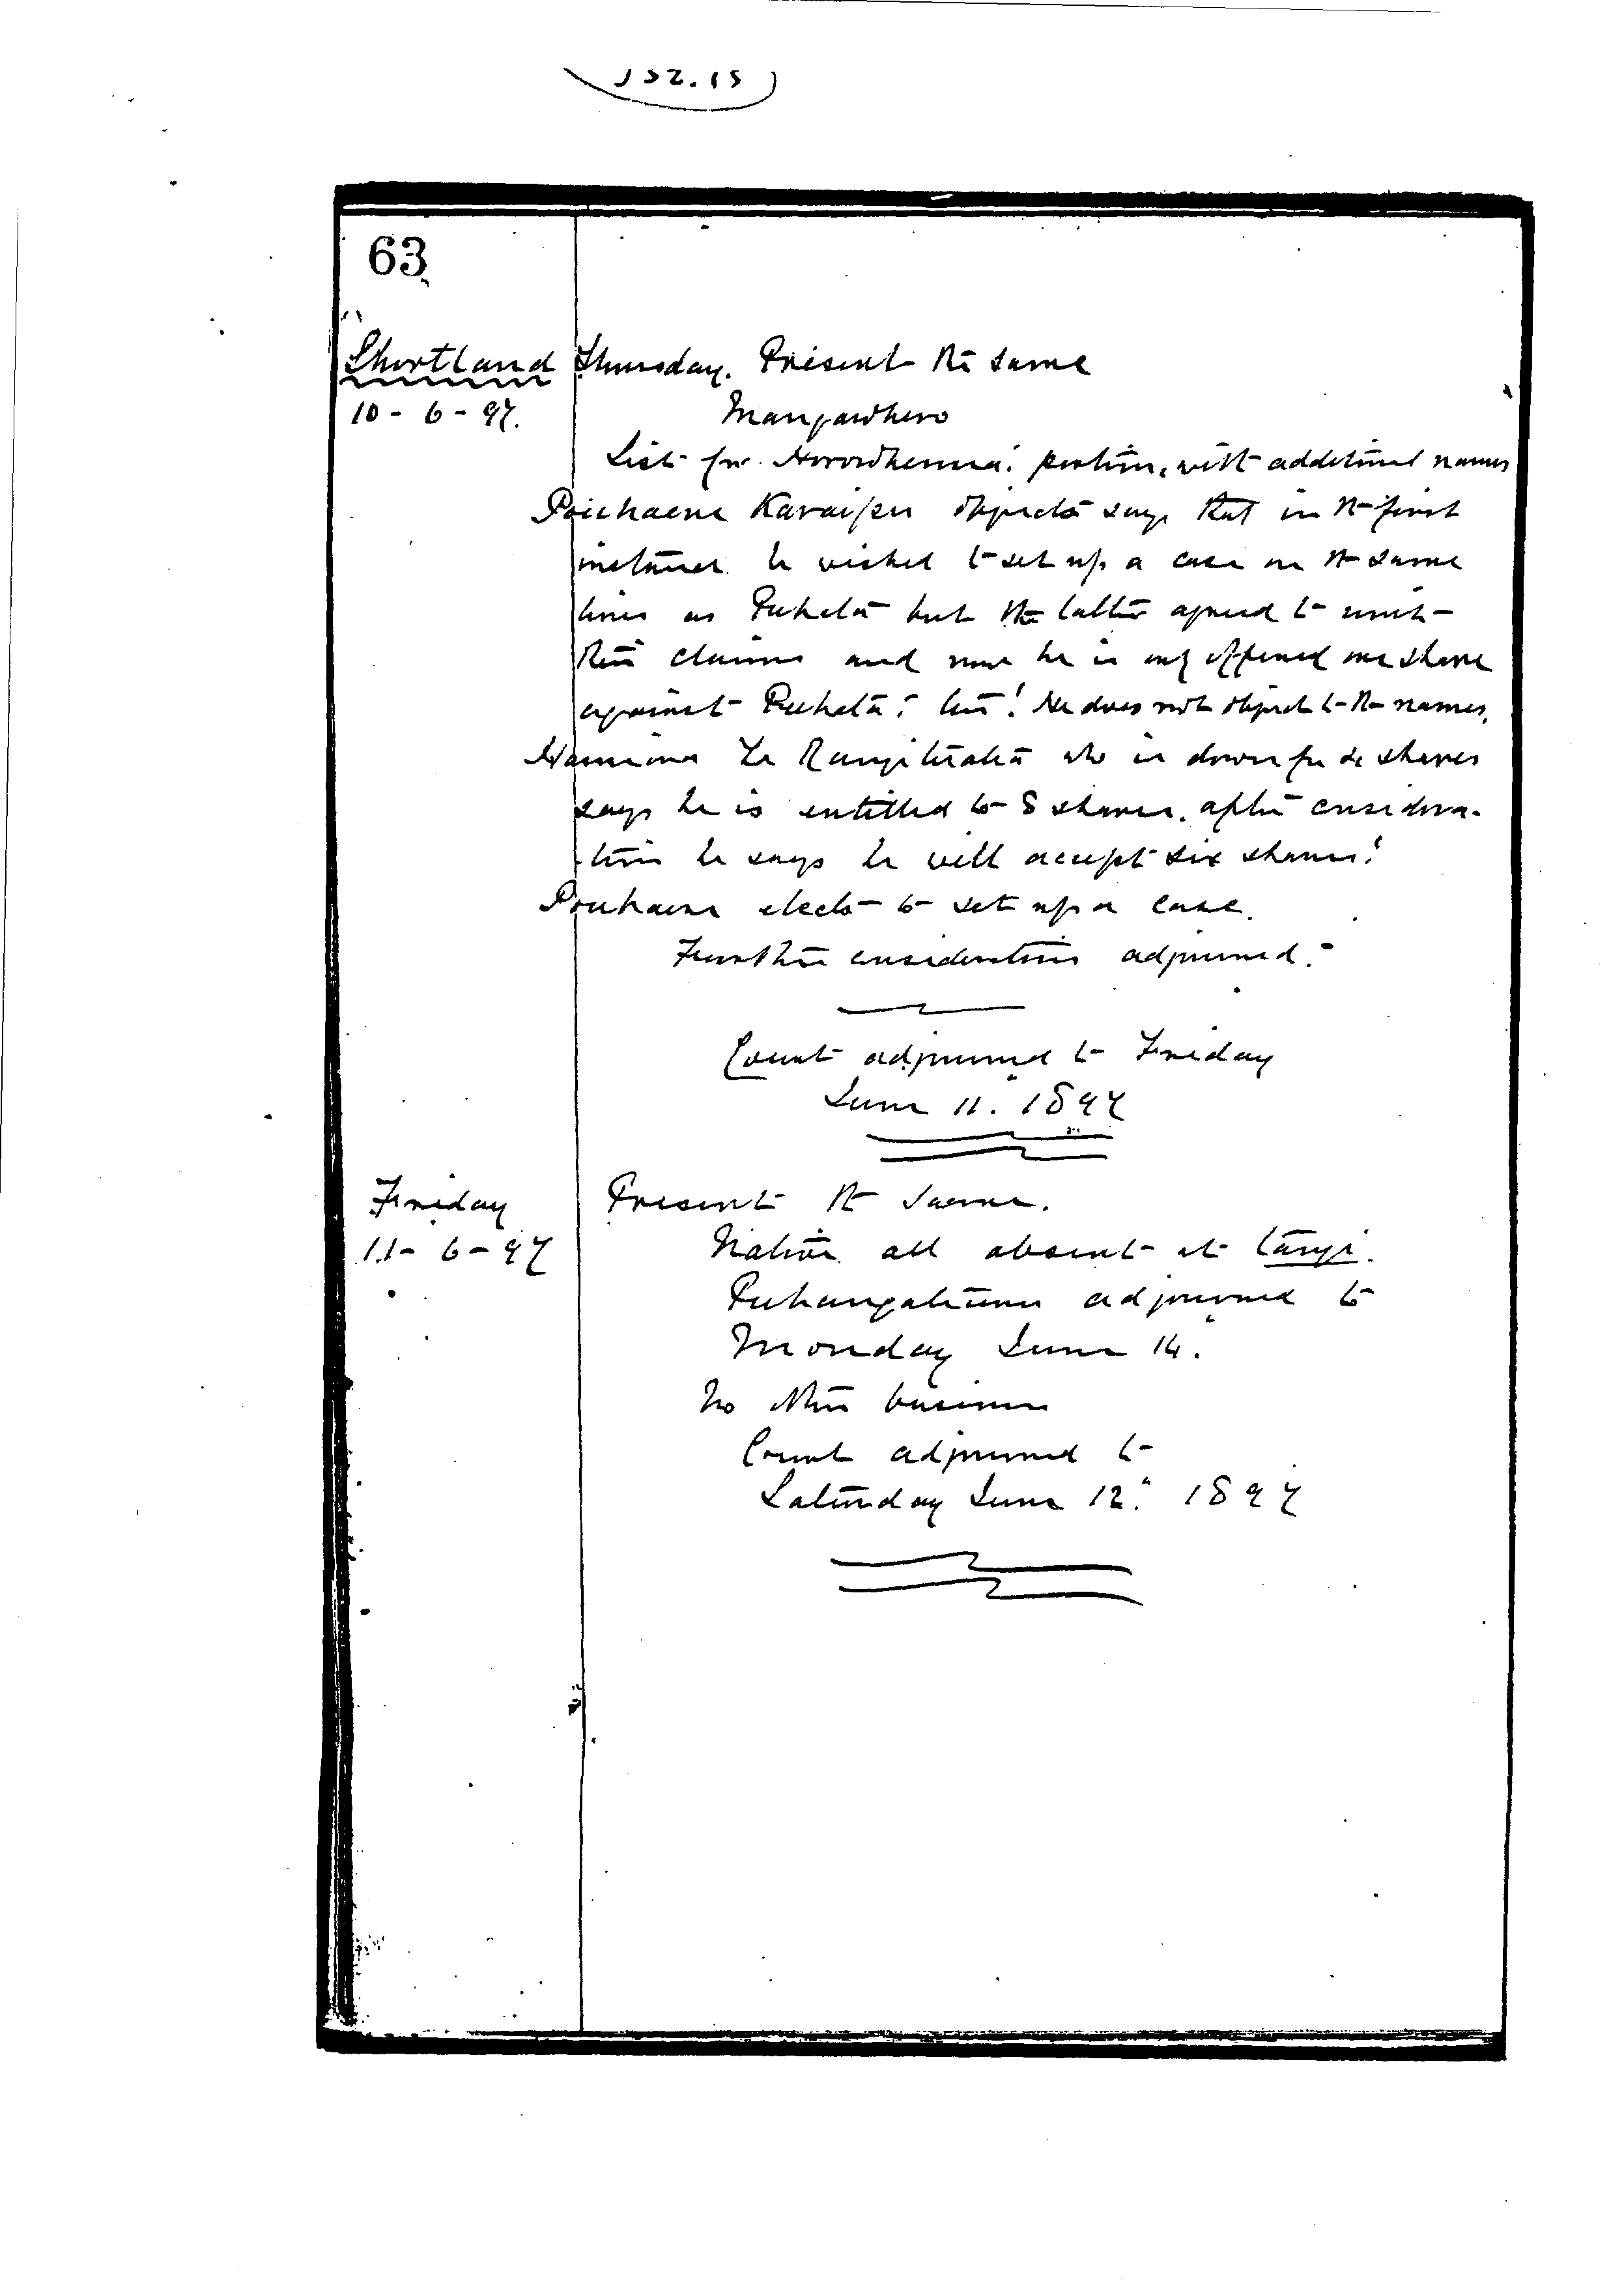 152.15
63
Shortland Thursday. Present the same
10 - 6 - 97.
Mangawhero
List for portion, with additional names
Pouhaere objects says that in the first
instance he wished to set up a case on the same
lines as Puketa but the latter agreed to
their claims and now he is only offered one share
against Puketa's ten! He does not object to the names.
Te who is down for shares
says he is entitled to 8 shares. after considera-
tion he says he will accept six shares!
Pouhaere elects to set up a case.
Further consideration adjourned.
Court adjourned to Friday
June 11. 1897
Friday Present the same.
11 - 6 - 97 Natives all absent at tangi.
adjourned to
Monday June 14.
No other business
Court adjourned to
Saturday June 12. 1897